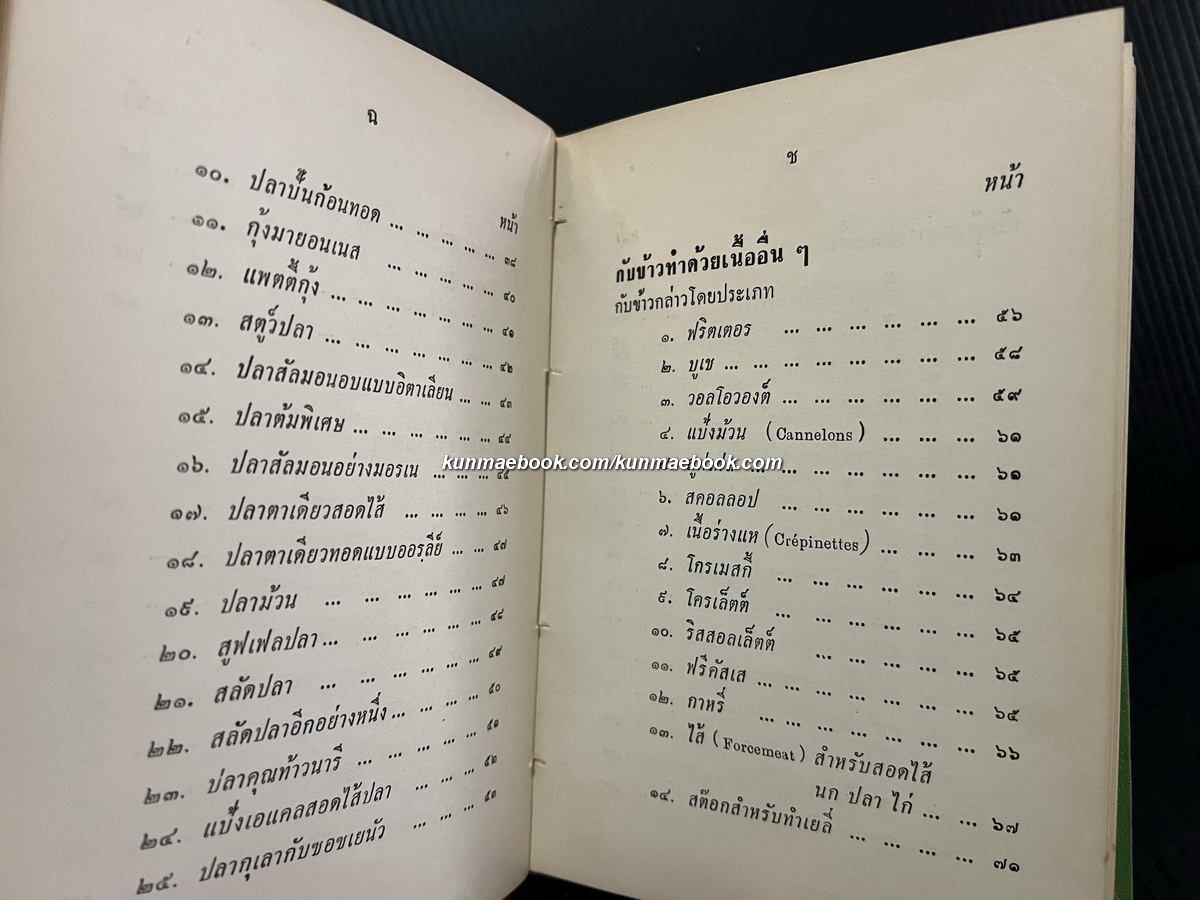 ฉ
หน้า
๑๐. ปลาบั้นก้อนทอด ... ... ... ... ... ๓๘
๑๑. กุ้งมายอนเนส ... ... ... ... ... ๔๐
๑๒. แพตตี้กุ้ง ... ... ... ... ... ... ... ๔๑
๑๓. สตูว์ปลา ... ... ... ... ... ... ... ๔๒
๑๔. ปลาสัลมอนอบแบบอิตาเลียน ... ... ๔๓
๑๕. ปลาต้มพิเศษ ... ... ... ... ... ... ๔๔
๑๖. ปลาสัลมอนอย่างมอรเน ... ... ... ๔๕
๑๗. ปลาตาเดียวสอดไส้ ... ... ... ... ๔๖
๑๘. ปลาตาเดียวทอดแบบออรฺลีย์ ... ... ๔๗
๑๙. ปลาม้วน ... ... ... ... ... ... ๔๗
๒๐. สูฟเฟลปลา ... ... ... ... ... ... ๔๘
๒๑. สลัดปลา ... ... ... ... ... ... ๔๙
๒๒. สลัดปลาอีกอย่างหนึ่ง ... ... ... ... ๕๐
๒๓. ปลาคุณท้าวนารี ... ... ... ... ... ๕๑
๒๔. แป้งเอแคลสอดไส้ปลา ... ... ... ๕๒
๒๕. ปลากุเลากับซอซเยนัว ... ... ... ๕๓
ช
หน้า
กับข้าวทำด้วยเนื้ออื่น ๆ
กับข้าวกล่าวโดยประเภท
๑. ฟริตเตอร ... ... ... ... ... ... ๕๖
๒. บูเช ... ... ... ... ... ... ... ... ๕๘
๓. วอลโอวองต์ ... ... ... ... ... ... ... ๕๙
๔. แป้งม้วน (Cannelons) ... ... ... ๖๑
kunmaebook.com/kunmaebook.com
... ... ... ... ... ๖๑
๖. สคอลลอป ... ... ... ... ... ... ... ๖๑
๗. เนื้อร่างแห (Crépinettes) ... ... ... ๖๓
๘. โกรเมสกี้ ... ... ... ... ... ... ... ๖๔
๙. โครเล็ตต์ ... ... ... ... ... ... ๖๕
๑๐. ริสสอลเล็ตต์ ... ... ... ... ... ... ๖๕
๑๑. ฟรีคัสเส ... ... ... ... ... ... ... ... ๖๕
๑๒. กาหรี่ ... ... ... ... ... ... ... ... ๖๖
๑๓. ไส้ (Forcemeat) สำหรับสอดไส้
นก ปลา ไก่ ... ... ๖๗
๑๔. สต๊อกสำหรับทำเยลี่ ... ... ... ... ... ๗๑